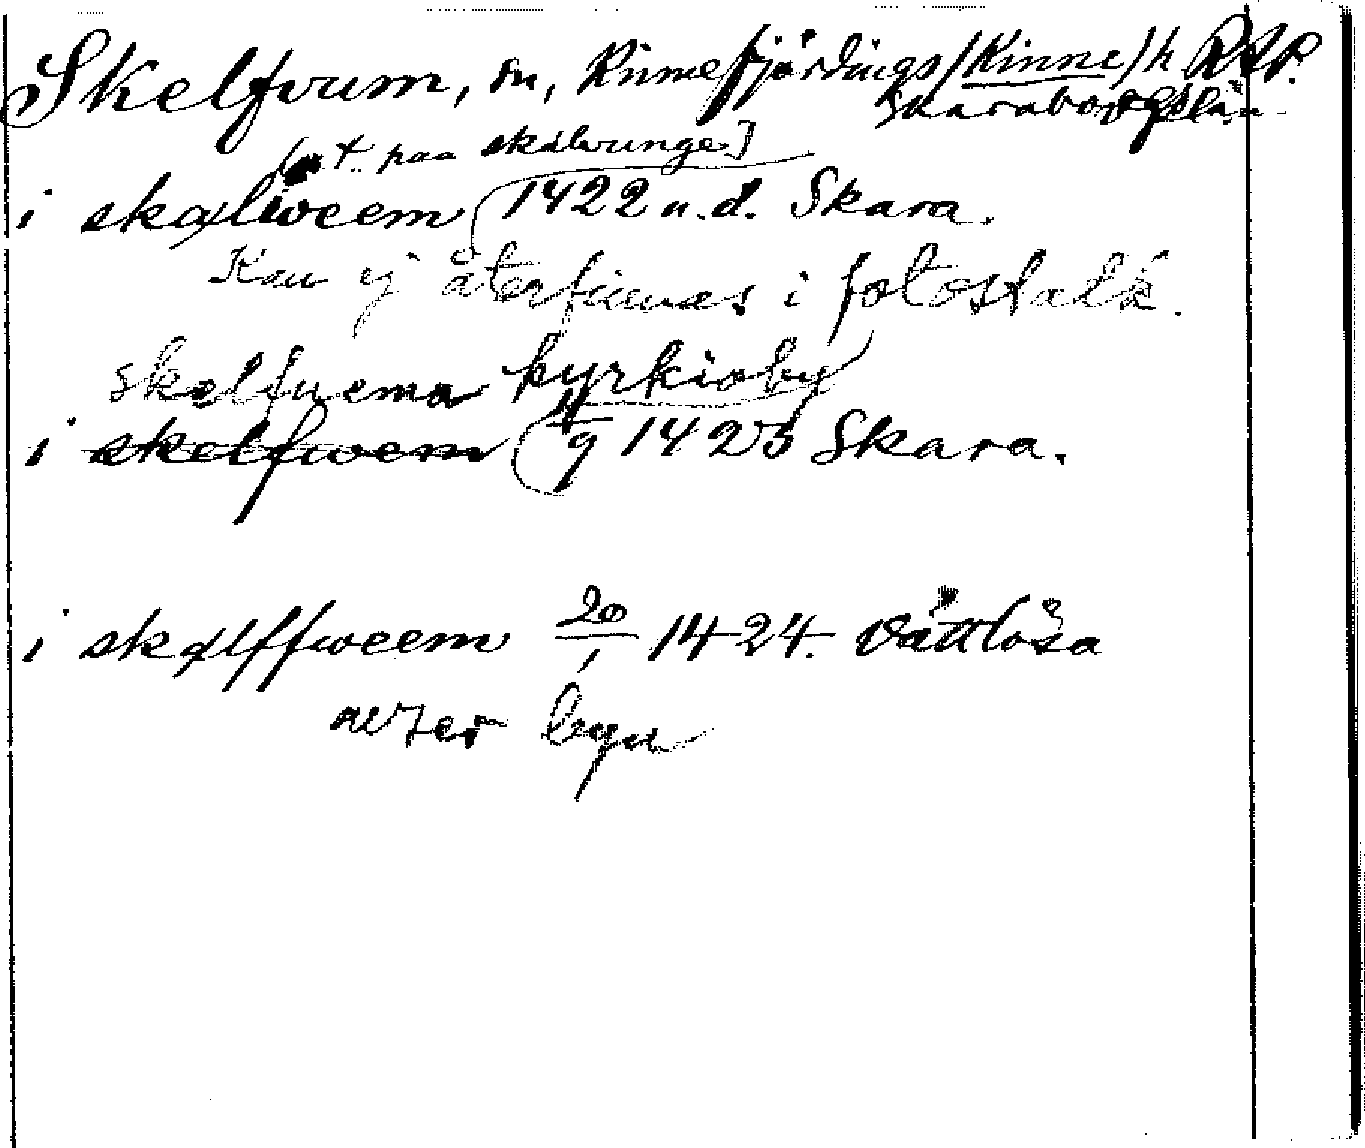 Skelfvum, sn, Kinnefjärdings (Kinne) h RAP.
Skaraborgs län
paa skälwunge]
i skælweem 1422 u.d. Skara.
Kan ej återfinnas i fotostatk.
skelfuema kyrkioby
i skelfwem 11/9 1423 Skara.
i skælffweem 20/1 1424. Vättlösa
byn